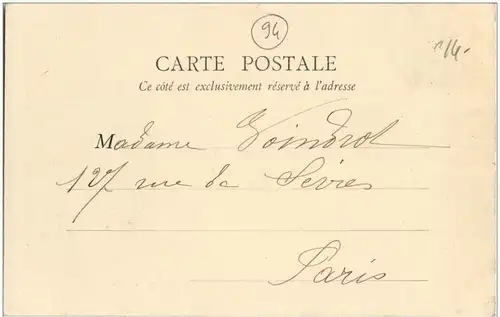 94
14.-
CARTE POSTALE
Ce côté est exclusivement réservé à l'adresse
Madame Voindrot
127 rue de Sévres
Paris